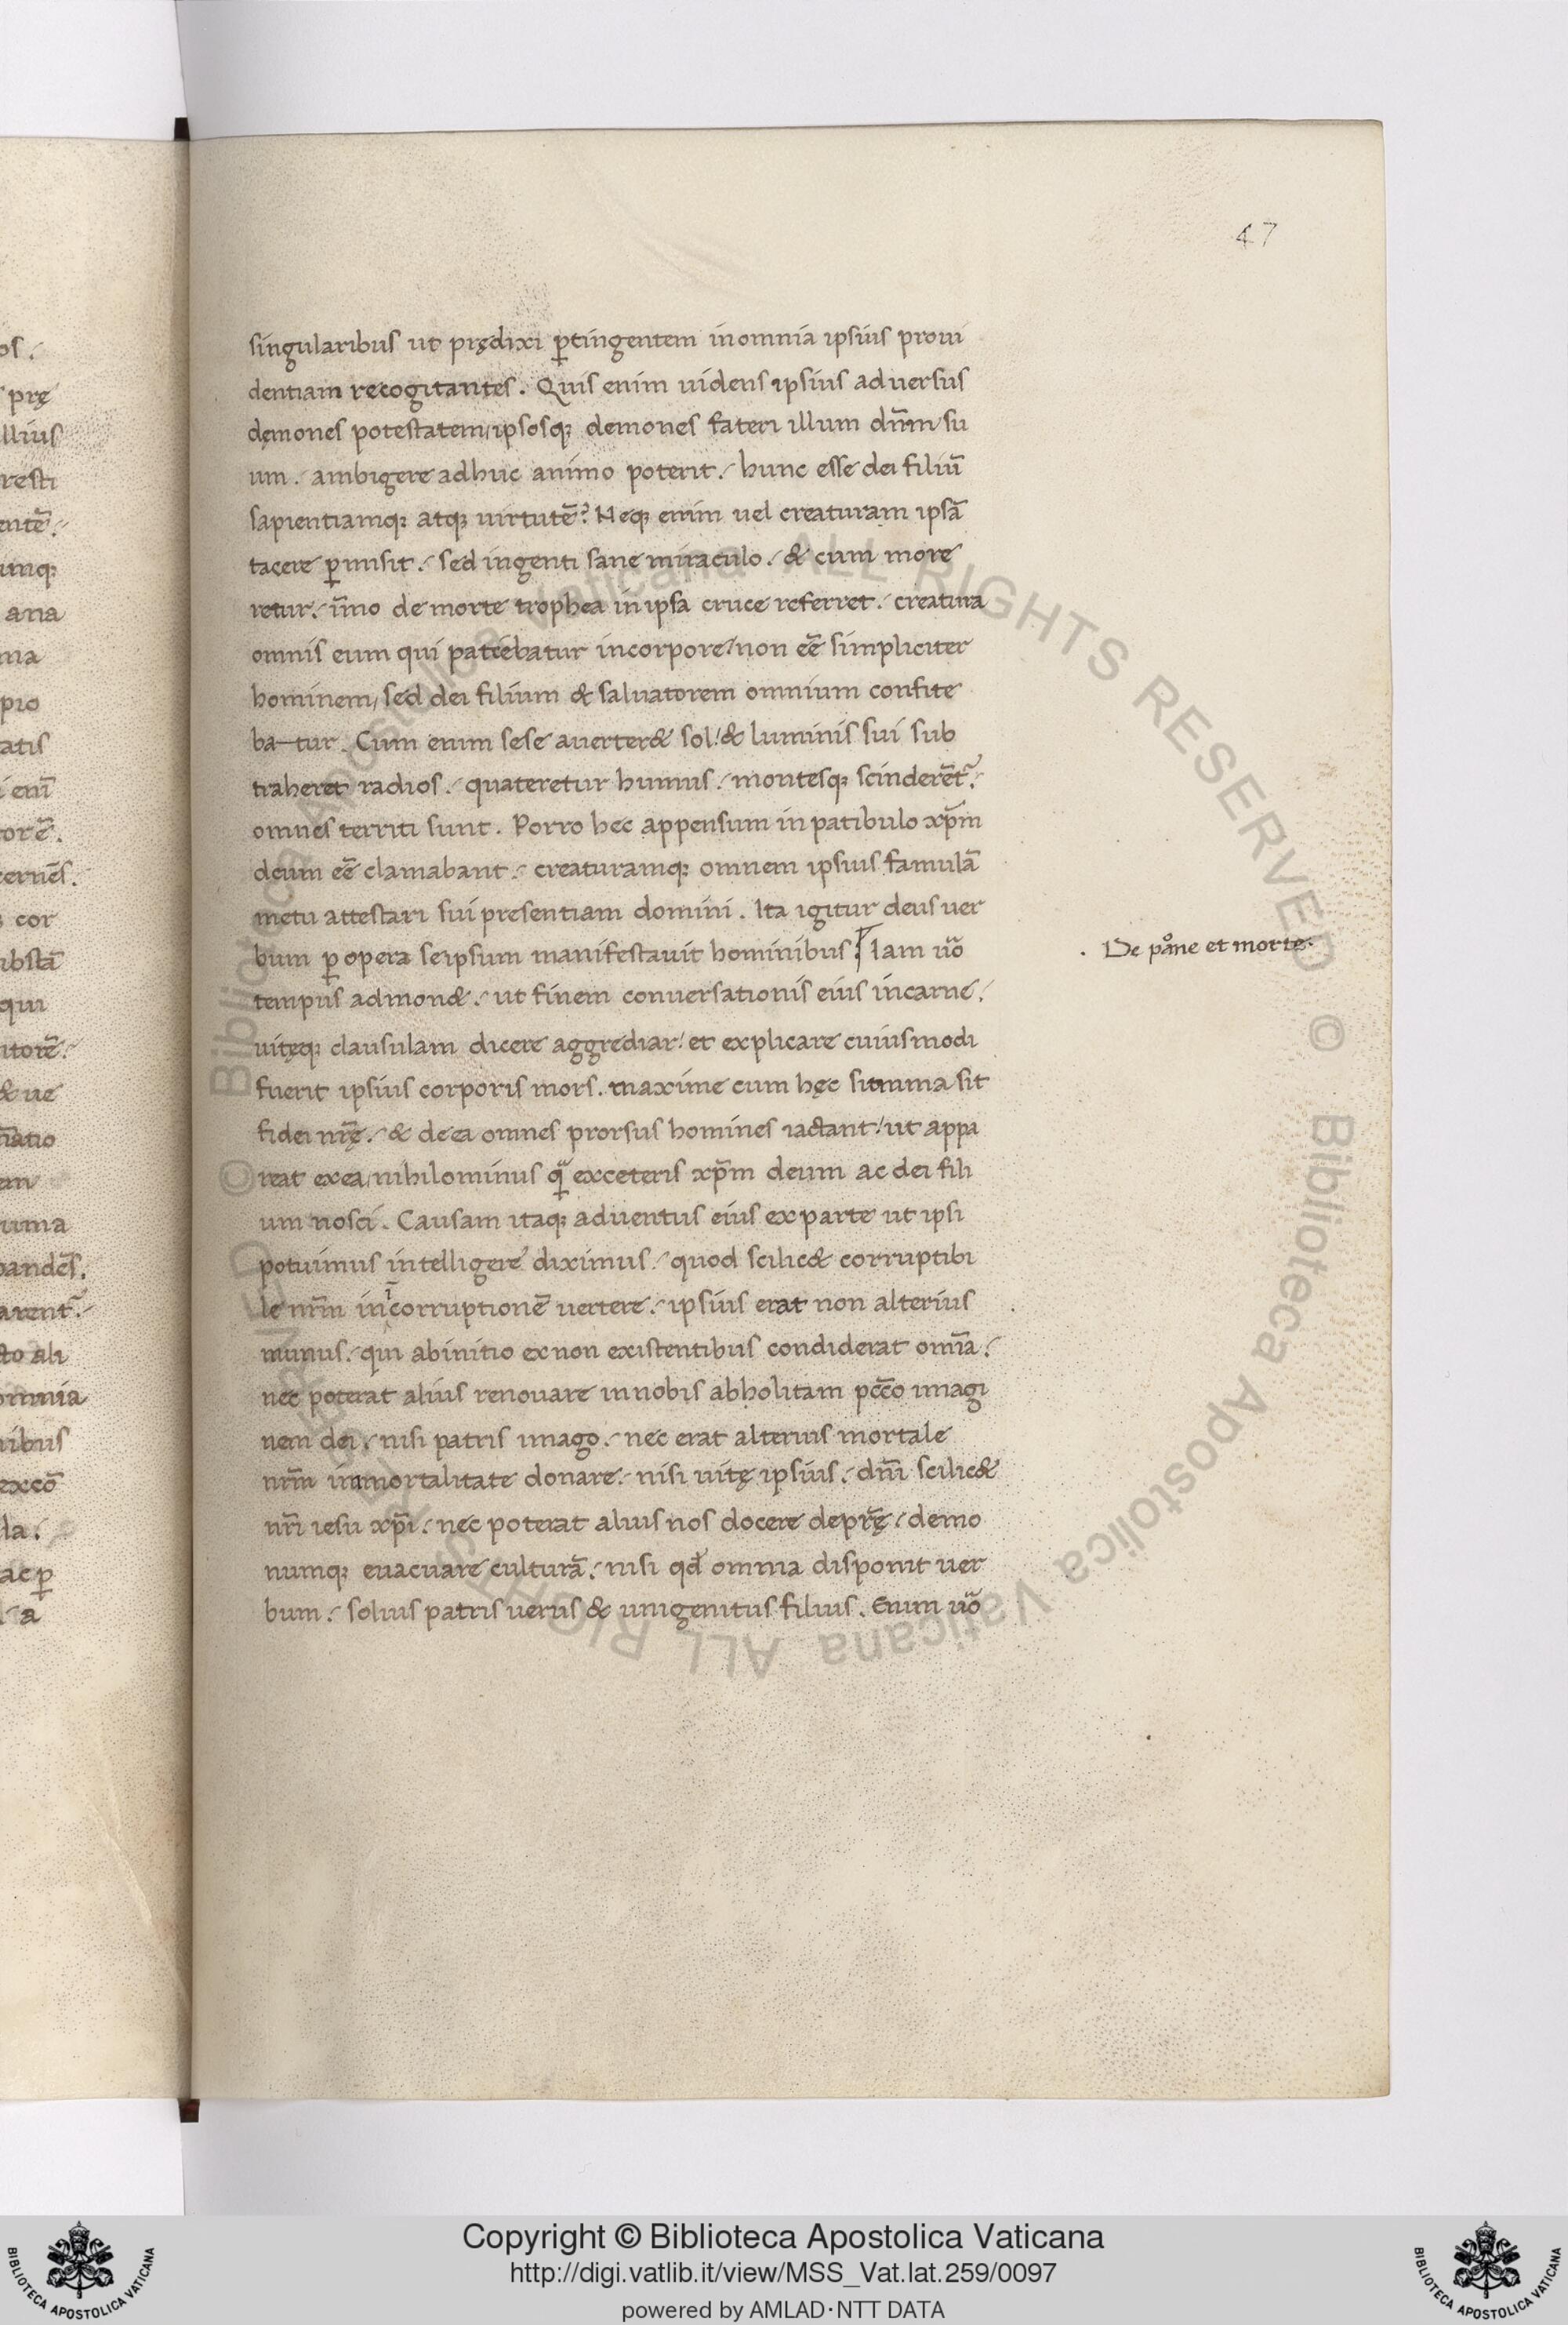 47
singularibus ut prędixi ꝑtingentem inomnia ipsius proui
dentiam recogitantes. Quis enim uidens ipsius aduersus
dęmones potestatem/ipsosq; demones fateri illum dn̄m su
um. ambigere adhuc animo poterit. hunc esse dei filiū
sapientiamq; atq; uirtutē? Neq; enim uel creaturam ipsā
tacere ꝑmisit. sed ingenti sane miraculo. & cum more
retur. im̄o de morte trophea inipsa cruce referret. creatura
omnis eum qui patiebatur incorpore/non eē simpliciter
hominem, sed dei filium & saluatorem omnium confite
ba-tur. Cum enim sese auerter& sol! & luminis sui sub
traheret radios. quateretur humus. montesq; scinderēt᷑.
omnes territi sunt. Porro hec appensum inpatibulo xp̄m
deum eē clamabant. creaturamq; omnem ipsius famulā
metu attestari sui presentiam domini. Ita igitur deus uer
bum ꝑ opera seipsum manifestauit hominibus. Iam uͦo
De pan̊e et morte.
tempus admon&. ut finem conuersationis eius incarne.
uitęq; clausulam dicere aggrediar! et explicare cuiusmodi
fuerit ipsius corporis mors. maxime cum hęc summa sit
fidei nr̄ę. & deea omnes prorsus homines iactant! ut appa
reat exea/nihilominus qͣ exceteris xp̄m deum ac dei fili
um nosci. Causam itaq; aduentus eius exparte ut ipsi
potuimus intelligere diximus. quod scilic& corruptibi
le nr̄m incorruptionē uertere. ipsius erat non alterius
munus. qui abinitio exnon existentibus condiderat om̄ia.
nec poterat alius renouare innobis abholitam pcc̄o imagi
nem dei. nisi patris imago. nec erat alterius mortale
nr̄m immortalitate donare. nisi uitę ipsius. dn̄i scilic&
nr̄i iesu xp̄i. nec poterat alius nos docere depr̄ę. demo
numq; euacuare culturā. nisi qd̓ omnia disponit uer
bum. solius patris uerus & unigenitus filius. Enim uͦo
os.
prę
llius
resti
entē.
umq;
ana
ma
pio
atis
enī
torē.
cernēs.
cor
ibstā
qui
itorē.
&ue
natio
em
uma
andēs.
arent᷑.
to ali
omnia
nibus
excō
la.
acꝑ
a
© Biblioteca Apostolica Vaticana ALL RIGHTS RESERVED © Biblioteca Apostolica Vaticana ALL RIGHTS RESERVED
Copyright © Biblioteca Apostolica Vaticana
http://digi.vatlib.it/view/MSS_Vat.lat.259/0097
powered by AMLAD·NTT DATA
BIBLIOTECA APOSTOLICA VATICANA
BIBLIOTECA APOSTOLICA VATICANA